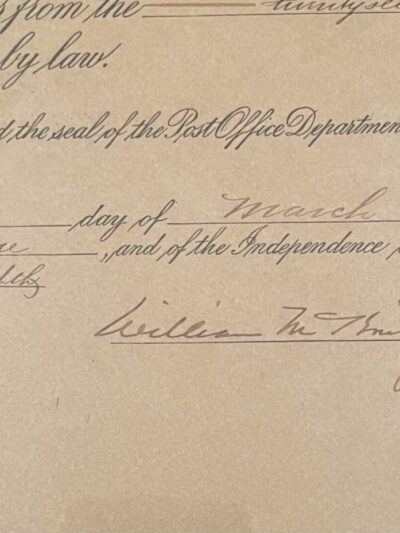 from the
by law.
the seal of the Post Office Departmen
day of March
, and of the Independence
William McKin